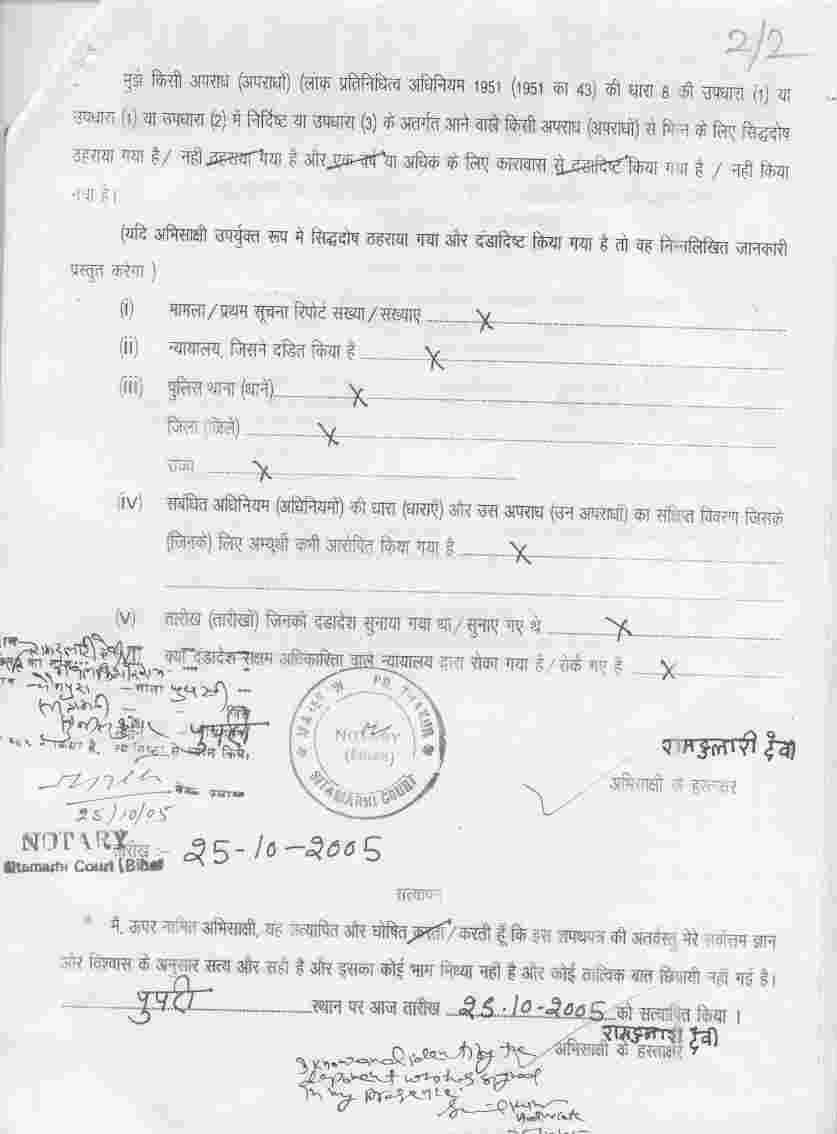 2/2
मुझे किसी अपराध (अपराधों) (लोक प्रतिनिधित्व अधिनियम 1951 (1951 का 43) की धारा 8 की उपधारा (1) या
उपधारा (1) या उपधारा (2) में निर्दिष्ट या उपधारा (3) के अंतर्गत आने वाले किसी अपराध (अपराधों) से भिन्न के लिए सिद्धदोष
ठहराया गया है / नहीं ठहराया गया है और एक वर्ष या अधिक के लिए कारावास से दंडादिष्ट किया गया है / नहीं किया
गया है।
(यदि अभिसाक्षी उपर्युक्त रूप में सिद्धदोष ठहराया गया और दंडादिष्ट किया गया है तो वह निम्नलिखित जानकारी
प्रस्तुत करेगा )
(i) मामला / प्रथम सूचना रिपोर्ट संख्या / संख्याएं X
(ii) न्यायालय, जिसने दंडित किया है X
(iii) पुलिस थाना (थाने) X
जिला (जिले) X
राज्य X
(iv) संबंधित अधिनियम (अधिनियमों) की धारा (धाराएँ) और उस अपराध (उन अपराधों) का संक्षिप्त विवरण जिसके
(जिनके) लिए अभ्यर्थी कभी आरोपित किया गया है X
(v) तारीख (तारीखों) जिनको दंडादेश सुनाया गया था / सुनाए गए थे X
क्या दंडादेश सक्षम अधिकारिता वाले न्यायालय द्वारा रोका गया है / रोके गए है X
NOTARY
(Bihar)
SITAMARHI COURT
रामदुलारी देवी
अभिसाक्षी के हस्ताक्षर
25/10/05
NOTARY
Sitamarhi Court (Bihar)
तारीख :- 25-10-2005
सत्यापन
में, ऊपर नामित अभिसाक्षी, यह सत्यापित और घोषित करता / करती हूँ कि इस शपथपत्र की अंतर्वस्तु मेरे सर्वोत्तम ज्ञान
और विश्वास के अनुसार सत्य और सही है और इसका कोई भाग मिथ्या नहीं है और कोई तात्विक बात छिपायी नहीं गई है।
पुपरी स्थान पर आज तारीख 25.10-2005 को सत्यापित किया ।
रामदुलारी देवी
अभिसाक्षी के हस्ताक्षर
I know and identify the
deponent who has signed
in my presence